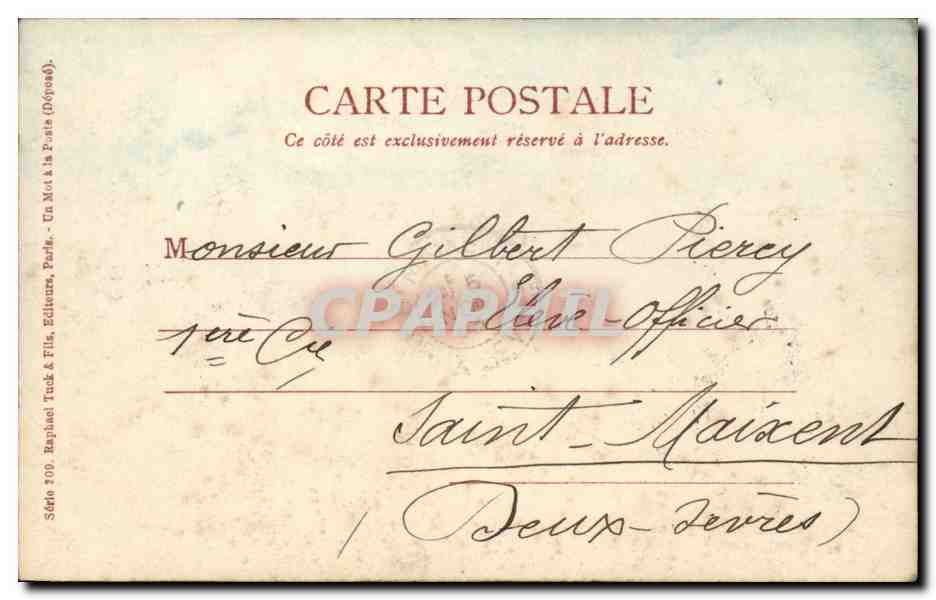 CARTE POSTALE
Ce côté est exclusivement réservé à l'adresse.
Monsieur Gilbert Piercy
Elève-Officier
1ère Cie
Saint-Maixent
(Deux-Sèvres)
Série 209. Raphael Tuck & Fils, Editeurs, Paris. - Un Mot à la Poste (Déposé).
CPAPHIL